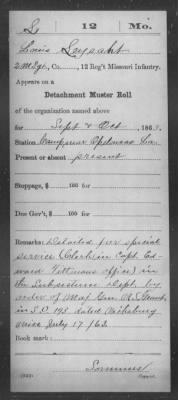 L 12 Mo.
Louis
Co. , 12 Reg't Missouri Infantry.
Appears on a
Detachment Muster Roll
of the organization named above
for Sept & Oct , 1863.
Station Camp near Opelousas La.
Present or absent present
Stoppage, $ 100 for
Due Gov't, $ 100 for
Remarks: Detached for special
service (Clerk in Capt. Ed-
ward office) in
the Subsistence Dept. by
order of Maj Gen U. S. Grant
in S.O. 193 dated Vicksburg
Miss July 17/63.
Book mark: